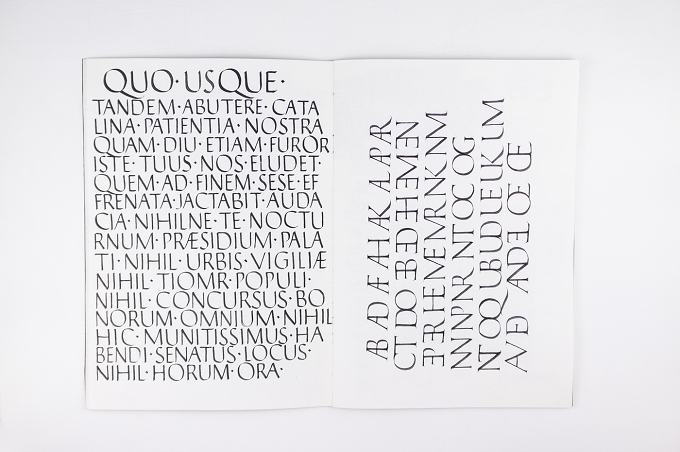 QUO·USQUE·
TANDEM·ABUTERE·CATA
LINA·PATIENTIA·NOSTRA
QUAM·DIU·ETIAM·FUROR
ISTE·TUUS·NOS·ELUDET·
QUEM·AD·FINEM·SESE·EF
FRENATA·JACTABIT·AUDA
CIA·NIHILNE·TE·NOCTU
RNUM·PRÆSIDIUM·PALA
TI·NIHIL·URBIS·VIGILIÆ
NIHIL·TIOMR·POPULI·
NIHIL·CONCURSUS·BO
NORUM·OMNIUM·NIHIL
HIC·MUNITISSIMUS·HA
BENDI·SENATUS·LOCUS·
NIHIL·HORUM·ORA·
AB AD Æ AH AK AL AP AR
CT DO EB ED EH EM EN
EP ER HE ME MR NK NM
NN NP NR NT OC OG
NT OQ UB UD UE UK UM